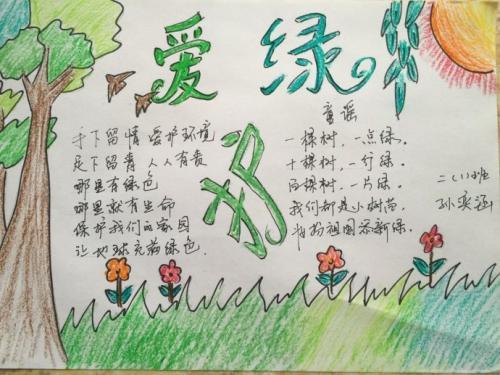 爱 绿 护
手下留情 爱护环境
足下留青 人人有责
哪里有绿色
哪里就有生命
保护我们的家园
让地球充满绿色.
童谣
一棵树,一点绿.
十棵树,一行绿.
百棵树,一片绿.
我们都是小树苗.
为祖国添新绿.
二(1)班
孙奕涵